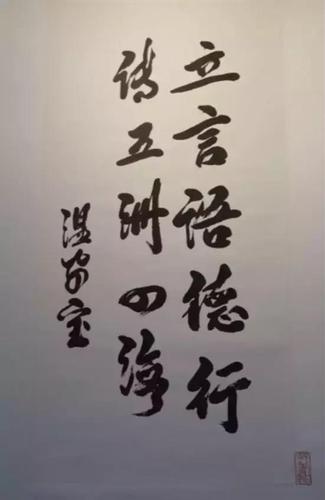 立言语德行
传五洲四海
温家宝